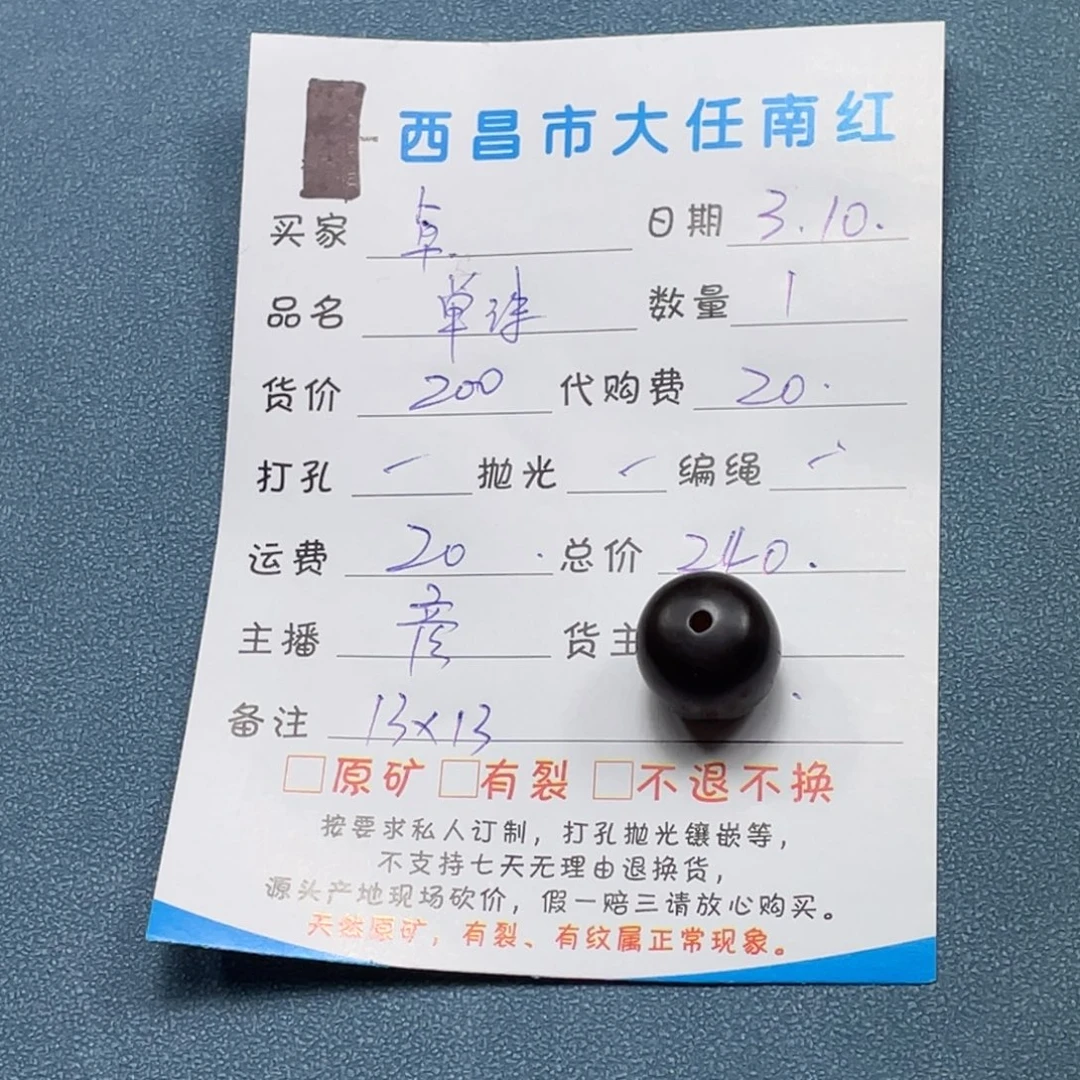 西昌市大任南红
买家 卓. 日期 3.10.
品名 单珠 数量 1
货价 200 代购费 20.
打孔 抛光 编绳
运费 20. 总价 240.
主播 彦 货主
备注 13×13
□原矿 □有裂 □不退不换
按要求私人订制，打孔抛光镶嵌等，
不支持七天无理由退换货，
源头产地现场砍价，假一赔三请放心购买。
天然原矿，有裂、有纹属正常现象。